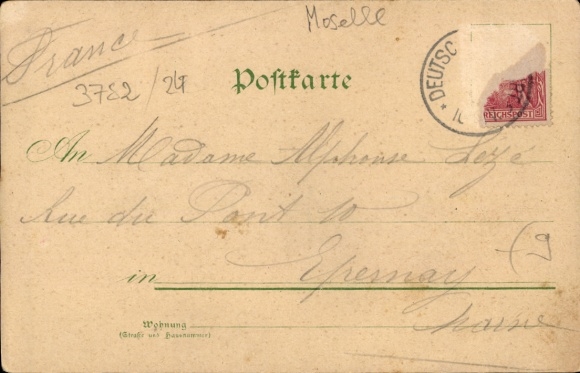 Moselle
France
3782/24
Postkarte
* DEUTSC
REICHSPOST
An Madame Alphonse Lozé
Rue du Pont 10
in Epernay
9
Wohnung
(Straße und Hausnummer)
Marne